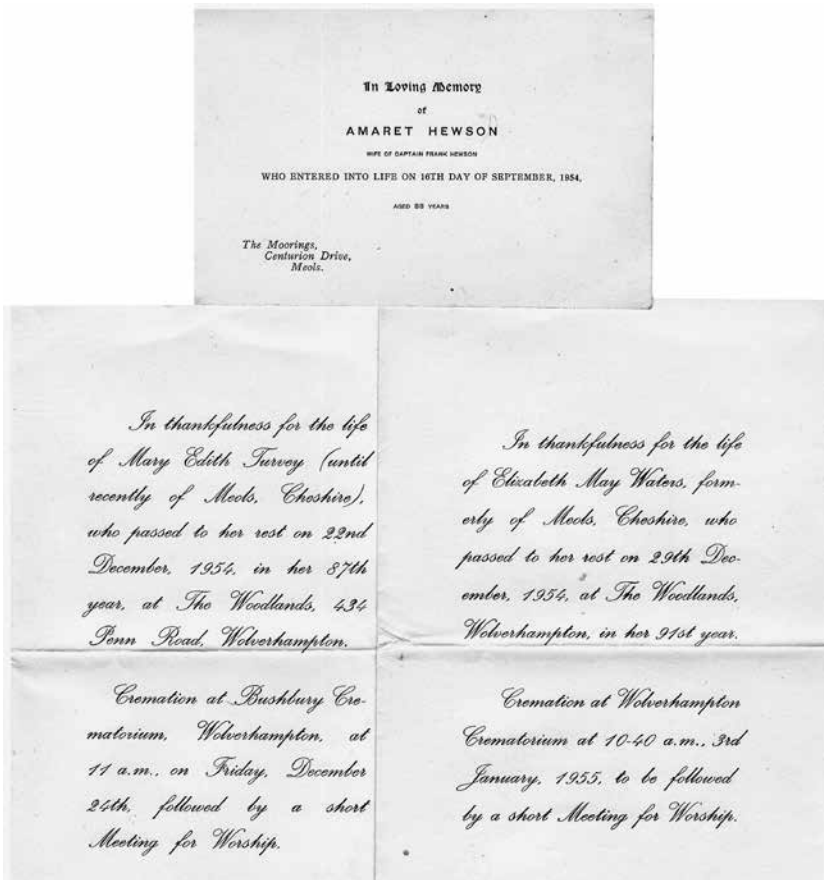 In Loving Memory
of
AMARET HEWSON
WIFE OF CAPTAIN FRANK HEWSON
WHO ENTERED INTO LIFE ON 16TH DAY OF SEPTEMBER, 1954,
AGED 88 YEARS
The Moorings,
Centurion Drive,
Meols.
In thankfulness for the life
of Mary Edith Turvey (until
recently of Meols, Cheshire),
who passed to her rest on 22nd
December, 1954, in her 87th
year, at The Woodlands, 434
Penn Road, Wolverhampton.
Cremation at Bushbury Cre-
matorium, Wolverhampton, at
11 a.m., on Friday, December
24th, followed by a short
Meeting for Worship.
In thankfulness for the life
of Elizabeth May Waters, form-
erly of Meols, Cheshire, who
passed to her rest on 29th Dec-
ember, 1954, at The Woodlands,
Wolverhampton, in her 91st year.
Cremation at Wolverhampton
Crematorium at 10-40 a.m., 3rd
January, 1955, to be followed
by a short Meeting for Worship.